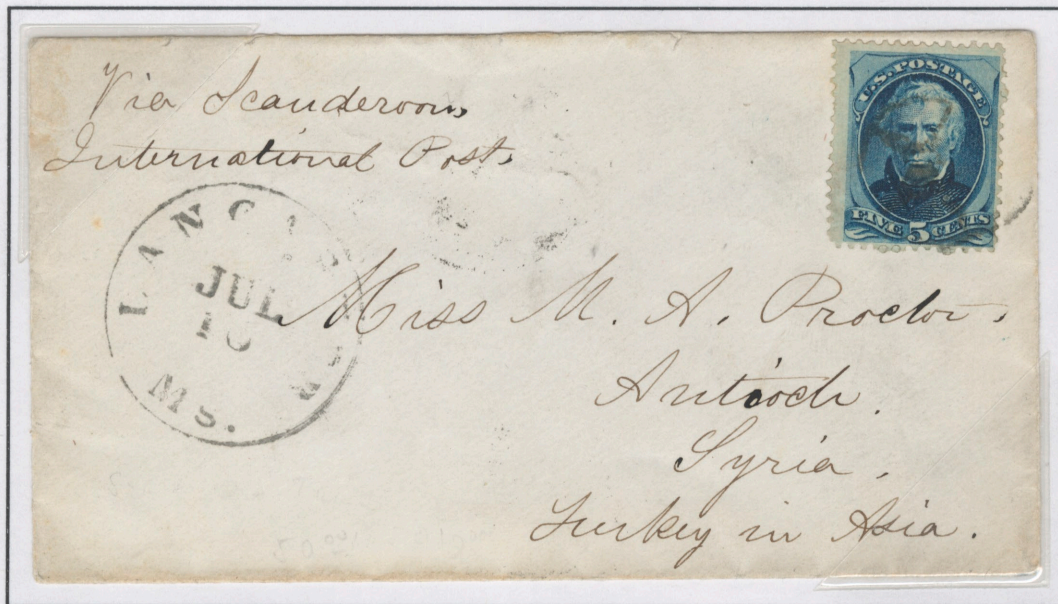 Via Scanderoon,
International Post,
U.S. POSTAGE
FIVE 5 CENTS
LANCASTER
MS.
JUL
Miss M. A. Proctor,
Antioch.
Syria,
Turkey in Asia.